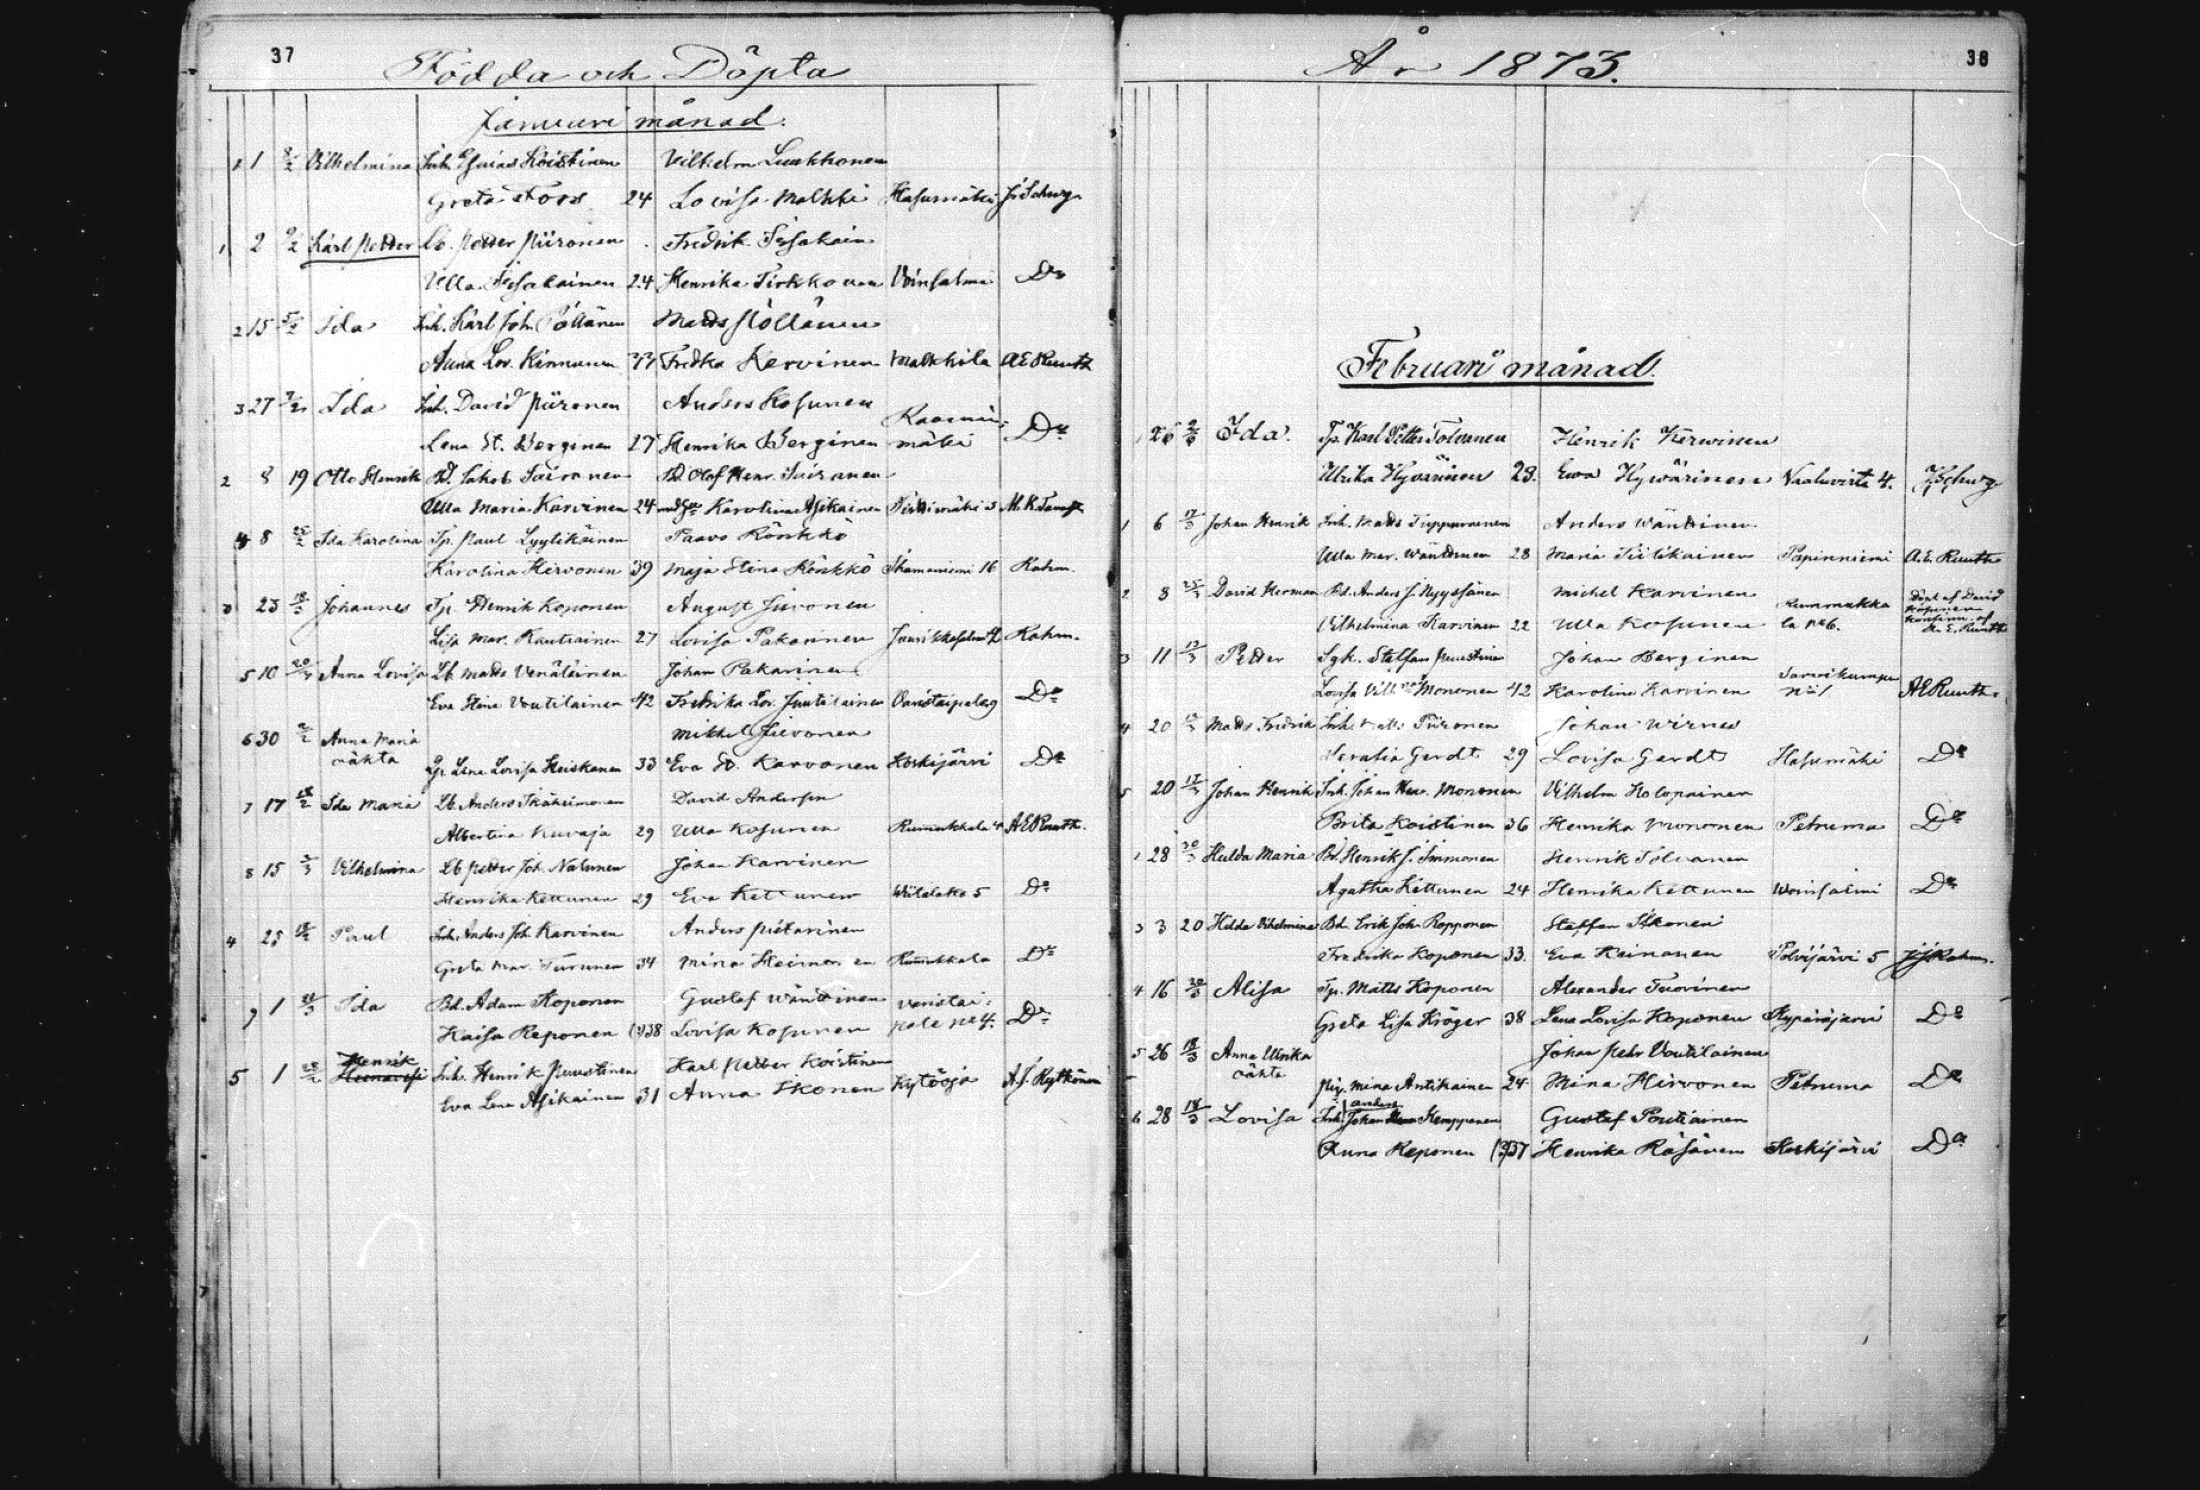 37
Födda och Döpta
Januari månad.
1 1 8/2 Vilhelmina Inh. Esaias Koistinen Vilhelm Luukkonen
Greta Foos 24 Lovisa Malkki Hasumäki J. Schwg.
1 2 9/2 Karl Petter Lb. Petter Piironen Fredrik
Ulla 24 Henrika Tirkkonen Voinsalmi Do
2 15 5/2 Ida Inh. Karl Joh. Pöllänen Matts Pöllänen
Anna Lov. Kinnunen 33 Fredka Kervinen Malkkila A E Ruuth
3 27 Ida Inh. David Piironen Anders Kosunen
Lena St. Berginen 27 Henrika Berginen mäki Do
2 8 19 Otto Henrik Bd. Jakob Bd. Olaf Henr.
Ulla Maria Karvinen 24 Karolina Asikainen
4 8 Ida Karolina Tp. Paul Lyytikäinen Paavo Rönkkö
Karolina Hirvonen 39 Maja Stina Rönkkö 16 Rahm.
3 23 18/3 Johannes Tp. Henrik Koponen August Juvonen
Lisa Mar. Rautiainen 27 Lovisa Pakarinen Rahm.
5 10 Anna Lovisa Lb. Matts Venäläinen Johan Pakarinen
Eva Stina Voutilainen 42 Fredrika Lov. Juutilainen Varistaipale 9 Do
6 30 2/2 Anna Maria Mikkel
oäkta Lena Lovisa Heiskanen 33 Eva St. Karvonen Koskijärvi Do
7 17 Ida Maria Lb. Anders David Andersin
Albertina Kuvaja 29 Ulla Kosunen Rummukkala 4 A E Ruuth.
8 15 Vilhelmina Lb Petter Joh. Johan Karvinen
Henrika Kettunen 29 Eva Kettunen 5 Do
4 25 Paul Inh. Anders Joh. Karvinen Anders Pietarinen
Greta Mar. Turunen 34 Mina Heimonen Rummukkala Do
9 1 Ida Bd. Adam Koponen Gustaf Wänttinen varistai-
Kaisa Reponen 38 Lovisa Kosunen pale No 4. Do
Henrik
5 1 Inh. Henrik Puustinen Karl Petter Koistinen
Eva Lena Asikainen 31 Anna Ikonen Kytöoja A. J. Rytkönen
38
År 1873.
Februari månad.
26 Ida. Tp. Karl Petter Tolvanen Henrik Kervinen
Ulrika Hyvärinen 23. Ewa Hywärinen Naaluvirta 4. J. Schwg
1 6 17/3 Johan Henrik Inh. Matts Tuppurainen Anders Wänttinen
Ulla Mar. Wänttinen 28 Maria Tiilikainen Papinniemi A. E. Ruuth
2 8 David Herman Bd. Anders J. Nyyssönen Michel Karvinen Döpt af David
Vilhelmina Karvinen 22 Ulla Kosunen la No 6. Kosunen
3 11 13/3 Petter Sgk. Staffan Puustinen Johan Berginen
Lovisa Mononen 42 Karolina Karvinen A E Ruuth.
4 20 Matts Fredrik Inh. Matts Piironen Johan Wirnes
Gerdt 29 Lovisa Gerdt Hasumäki Do
5 20 17/3 Johan Henrik Inh. Johan Henr. Mononen Vilhelm Holopainen
Brita Koistinen 36 Henrika Mononen Petruma Do
1 28 30/3 Hulda Maria Bd. Henrik J. Immonen Henrik Tolvanen
Agatha Kettunen 24 Henrika Kettunen Woinsalmi Do
3 3 20 Hilda Vilhelmina Bd. Erik Joh. Ropponen Staffan Ikonen
Fredrika Koponen 33. Eva Keinanen Polvijärvi 5 J J Rahm.
4 16 30/3 Alisa Tp. Matts Koponen Alexander Tuovinen
Greta Lisa Kröger 38 Lena Lovisa Koponen Kypäräjärvi Do
5 26 18/3 Anna Ulrika Johan Petr Voutilainen
oäkta Pig. Mina Antikainen 24 Mina Hirvonen Petruma Do
anders
6 28 18/3 Lovisa Inh. Johan Kemppanen Gustaf Poutiainen
Anna Reponen 37 Henrika Räsänen Koskijärvi Do